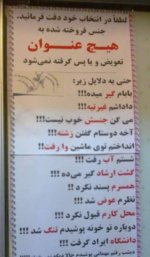 لطفاً در انتخاب خود دقت فرمائید.
جنس فروخته شده به
هیچ عنـــوان
تعویض و یا پس گرفته نمی‌شود
حتی به دلایل زیر:
بابام گیر میده!!!
داداشم غیرتیه!!!
می گن جنسش خوب نیست!!!
آخه دوستام گفتن زشته!!!
انداختم توی ماشین وا رفت!!
شستم آب رفت!!!
گشت ارشاد گیر می‌ده!!!
همسرم پسند نکرد!!!
نظرم عوض شد!!!
محل کارم قبول نکرد!!!
دوباره تو خونه پوشیدم تنگ شد!!!
دانشگاه ایراد گرفت!!!